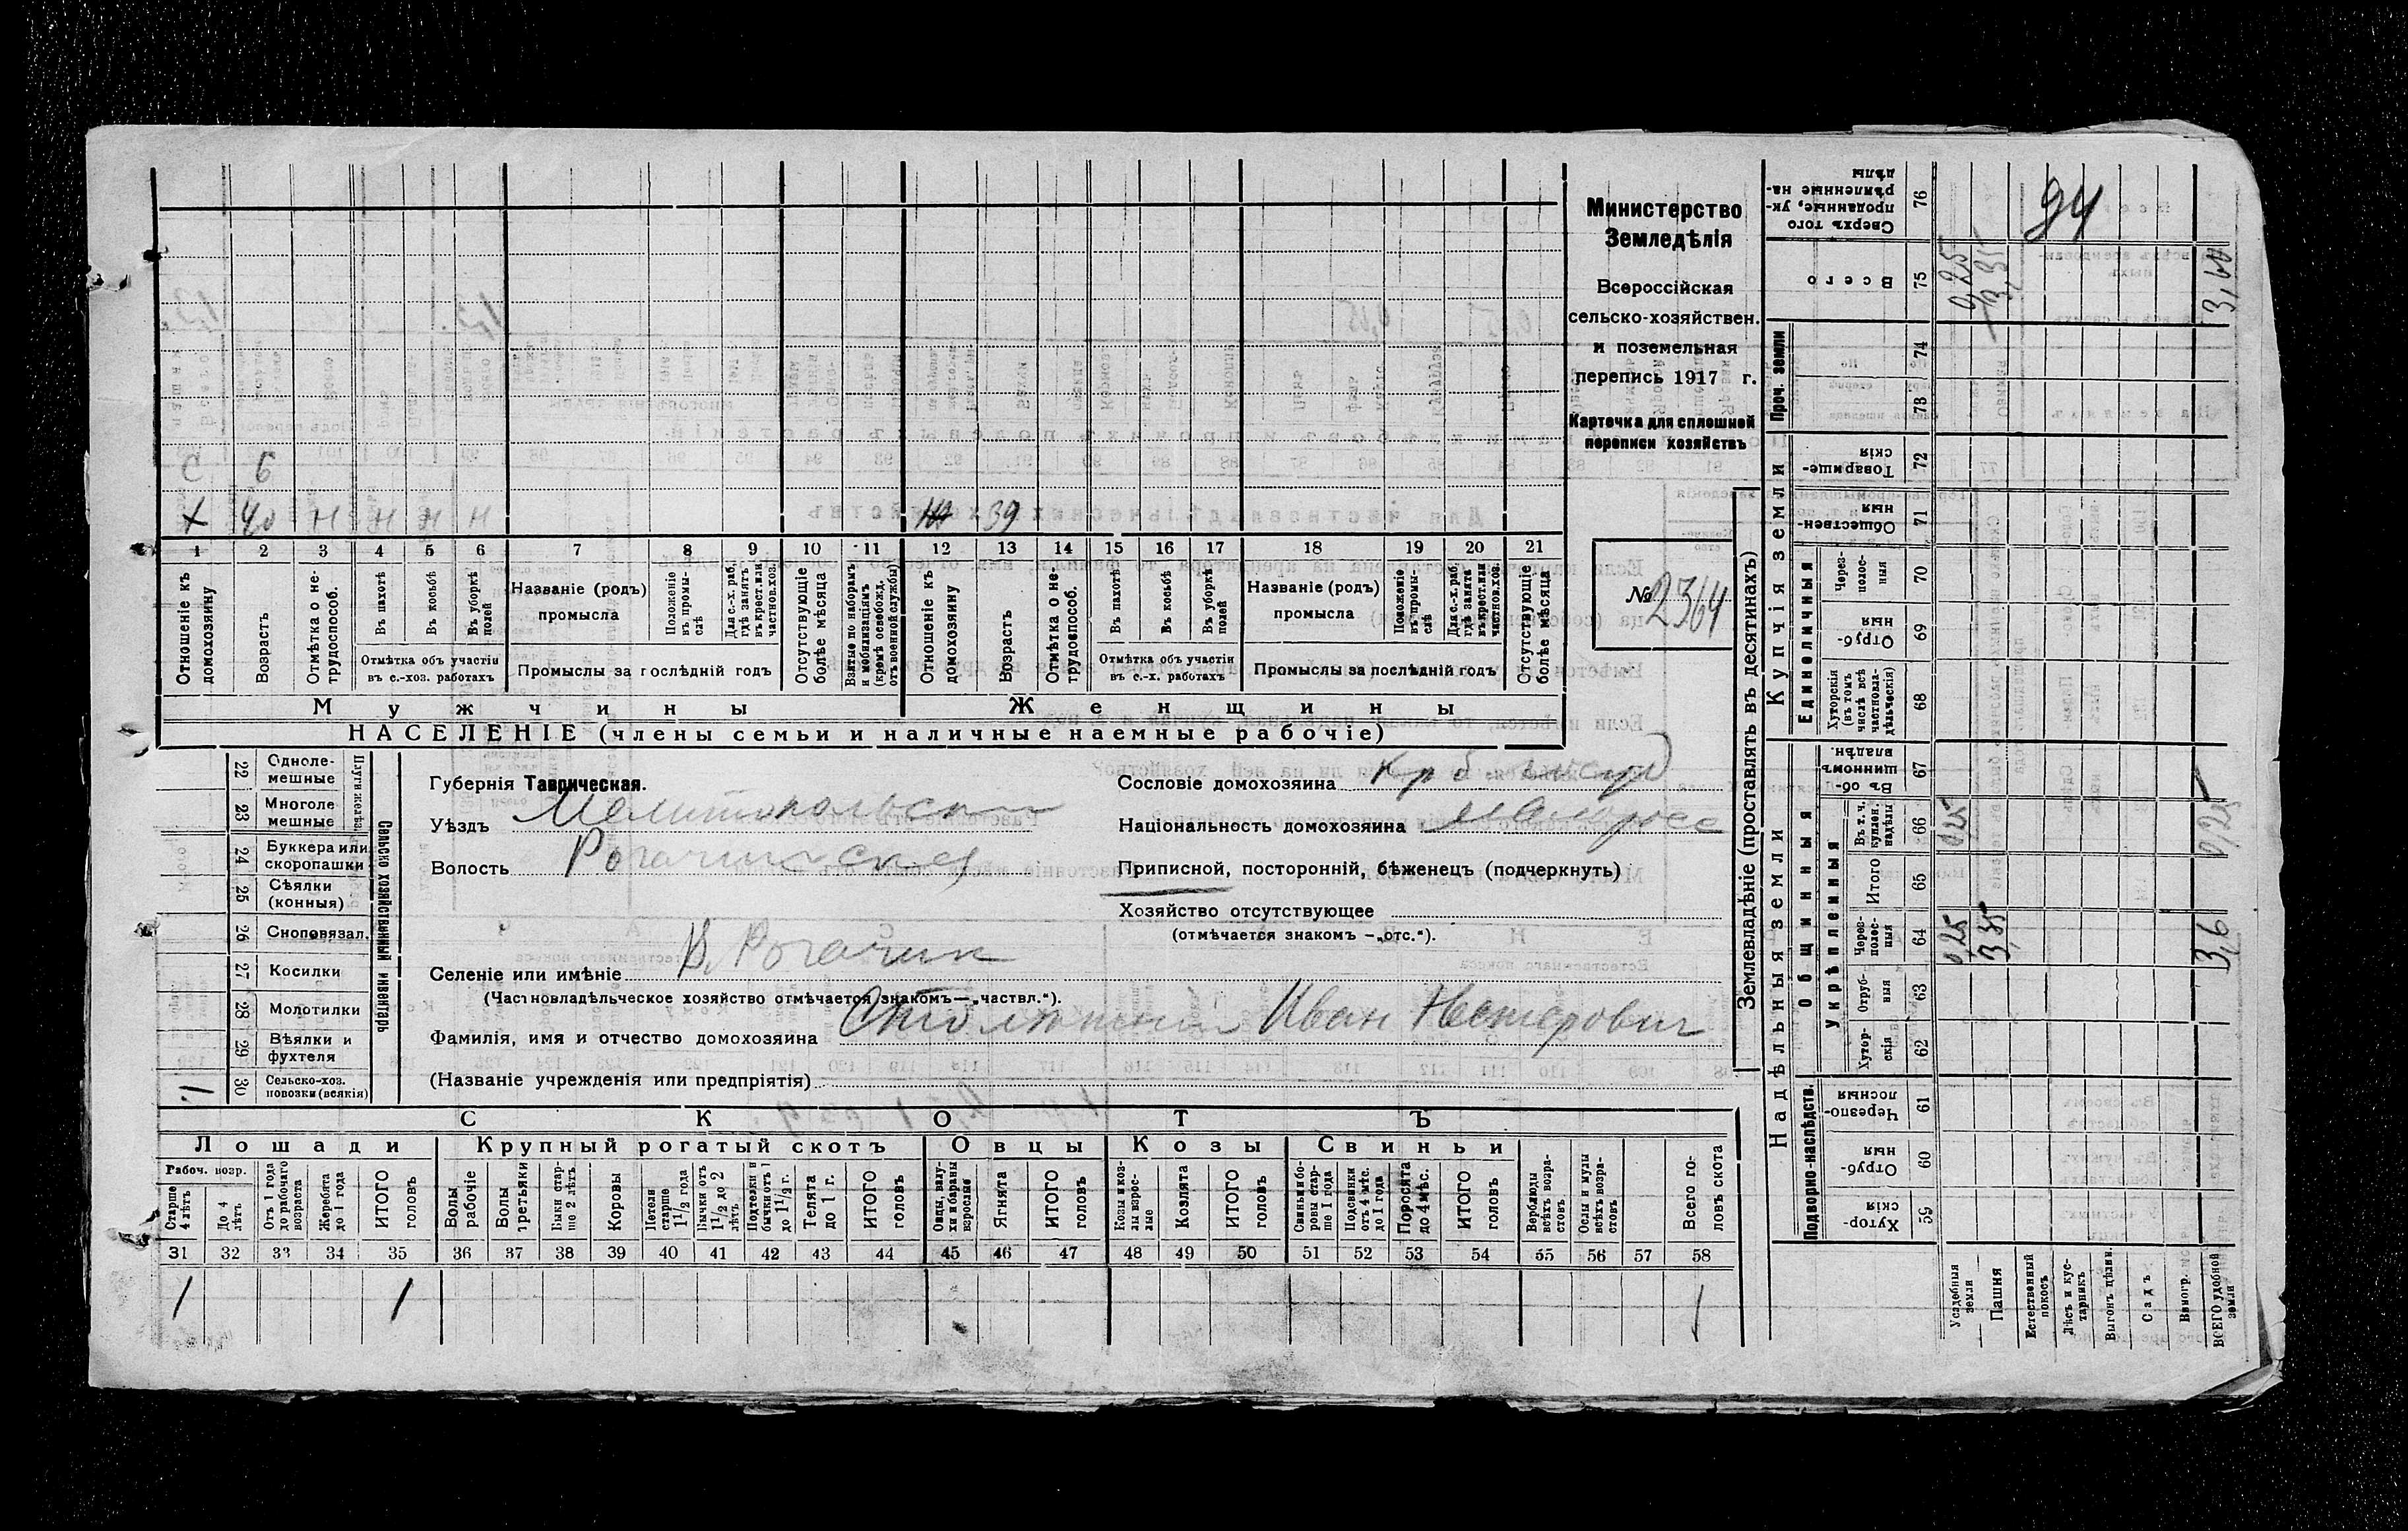 С 6
х 40 н н н н 39
1 2 3 4 5 6 7 8 9 10 11 12 13 14 15 16 17 18 19 20 21
Отношеніе къ домохозяину
Возрастъ
Отмѣтка о нетрудоспособ.
Въ пахотѣ
Въ косьбѣ
Въ уборкѣ полей
Отмѣтка объ участіи въ с.-хоз. работахъ
Названіе (родъ) промысла
Положеніе въ промыслѣ
Для с.-х. раб. гдѣ занятъ въ крест. или частнов. хоз.
Промыслы за послѣдній годъ
Отсутствующіе болѣе мѣсяца
Взятые по наборамъ и мобилизаціямъ (кромѣ освобожд. отъ военной службы)
Отношеніе къ домохозяину
Возрастъ
Отмѣтка о нетрудоспособ.
Въ пахотѣ
Въ косьбѣ
Въ уборкѣ полей
Отмѣтка объ участіи въ с.-х. работахъ
Названіе (родъ) промысла
Положеніе въ промыслѣ
Для с.-х. раб. гдѣ занята въ крест. или частнов. хоз.
Промыслы за послѣдній годъ
Отсутствующіе болѣе мѣсяца
Мужчины Женщины
НАСЕЛЕНІЕ (члены семьи и наличные наемные рабочіе)
Министерство
Земледѣлія
Всероссійская
сельско-хозяйствен.
и поземельная
перепись 1917 г.
Карточка для сплошной
переписи хозяйствъ
№ 2364
Сельско хозяйственный инвентарь
22 Однолемешные
23 Многолемешные
24 Буккера или скоропашки
25 Сѣялки (конныя)
26 Сноповязал.
27 Косилки
28 Молотилки
29 Вѣялки и фухтеля
1 30 Сельско-хоз. повозки (всякія)
Губернія Таврическая.
Уѣздъ Мелитопольскій
Волость Рогачикская
Селеніе или имѣніе В. Рогачик
(Частновладѣльческое хозяйство отмѣчается знакомъ—„частвл.“).
Фамилія, имя и отчество домохозяина Иван Нестерович
(Названіе учрежденія или предпріятія)
Сословіе домохозяина
Національность домохозяина малоросс
Приписной, посторонній, бѣженецъ (подчеркнуть)
Хозяйство отсутствующее
(отмѣчается знакомъ —„отс.“).
СКОТЪ
Лошади Крупный рогатый скотъ Овцы Козы Свиньи
Рабоч. возр.
Старше 4 лѣтъ
До 4 лѣтъ
Отъ 1 года до рабочаго возраста
Жеребята до 1 года
ИТОГО головъ
Волы рабочіе
Волы третьяки
Быки старше 2 лѣтъ
Коровы
Нетели старше 1 1/2 года
Бычки отъ 1 1/2 до 2 лѣтъ
Подтелки и бычки отъ 1 до 1 1/2 г.
Телята до 1 г.
ИТОГО головъ
Овцы, валухи и бараны взрослые
Ягнята
ИТОГО головъ
Козы и козлы взрослые
Козлята
ИТОГО головъ
Свиньи и боровы старше 1 года
Подсвинки отъ 4 мѣс. до 1 года
Поросята до 4 мѣс.
ИТОГО головъ
Верблюды всѣхъ возрастовъ
Ослы и мулы всѣхъ возрастовъ
Всего головъ скота
31 32 33 34 35 36 37 38 39 40 41 42 43 44 45 46 47 48 49 50 51 52 53 54 55 56 57 58
1 1 1
Землевладѣніе (проставлять въ десятинахъ)
Надѣльныя земли Купчія земли Проч. земли
Подворно-наслѣдств. Общинныя Единоличныя
Укрѣпленныя
Сверхъ того проданные, укрѣпленные надѣлы 76 94
Всего 75 0,25 3,35 3,60
74
73
Товарищескія 72
Общественныя 71
Черезполосныя 70
Отрубныя 69
Хуторскія (въ томъ числѣ всѣ частновладѣльческія) 68
Въ общинномъ владѣн. 67
Въ т. ч. куплен. надѣлы 66 0,25 0,25
Итого 65
Черезполосныя 64 0,25 3,35 3,6
Отрубныя 63
Хуторскія 62
Черезполосныя 61
Отрубныя 60
Хуторскія 59
Усадебныя земли
Пашня
Естественный покосъ
Лѣсъ и кустарникъ
Выгонъ цѣлин.
Садъ
Виногр.
ВСЕГО удобной земли